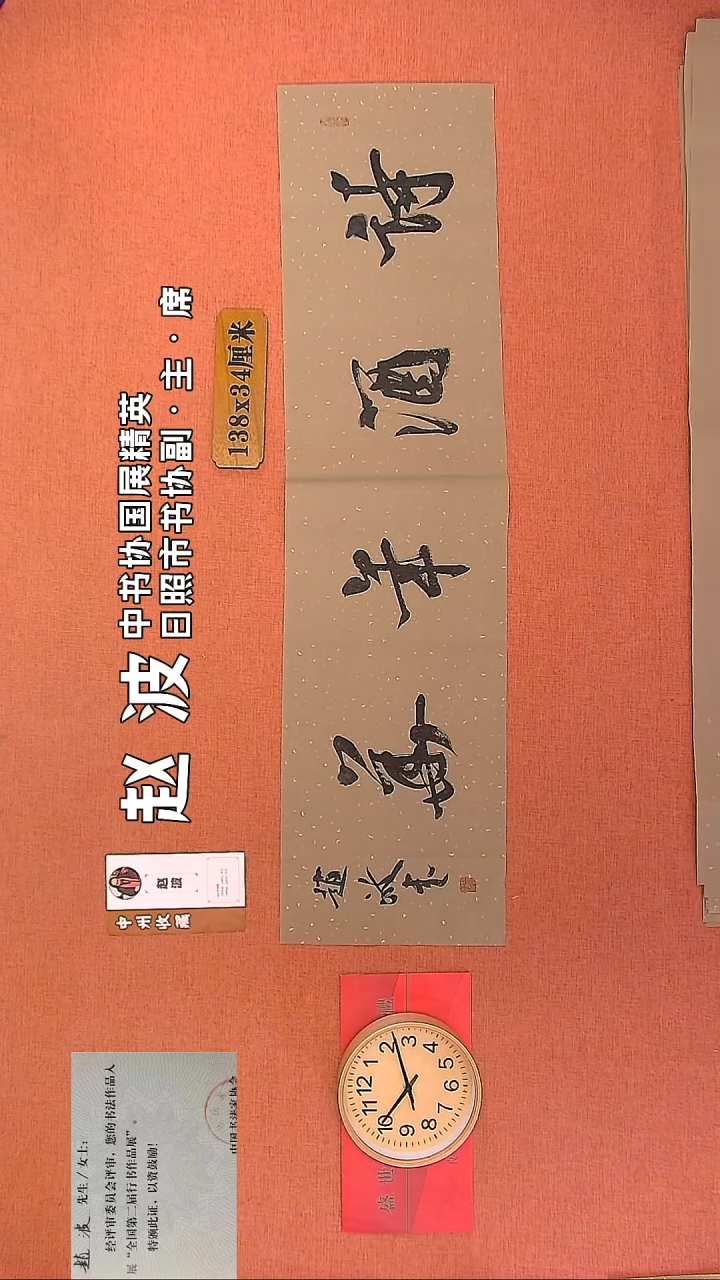 赵波
中书协国展精英
日照市书协副·主·席
138x34厘米
赵波
中州收藏
诗酒年華
趙波书
赵波 先生/女士:
经评审委员会评审，您的书法作品入
展“全国第二届行书作品展”。
特颁此证，以资鼓励!
中国书法家协会
盛世
12
1
2
3
4
5
6
7
8
9
10
11